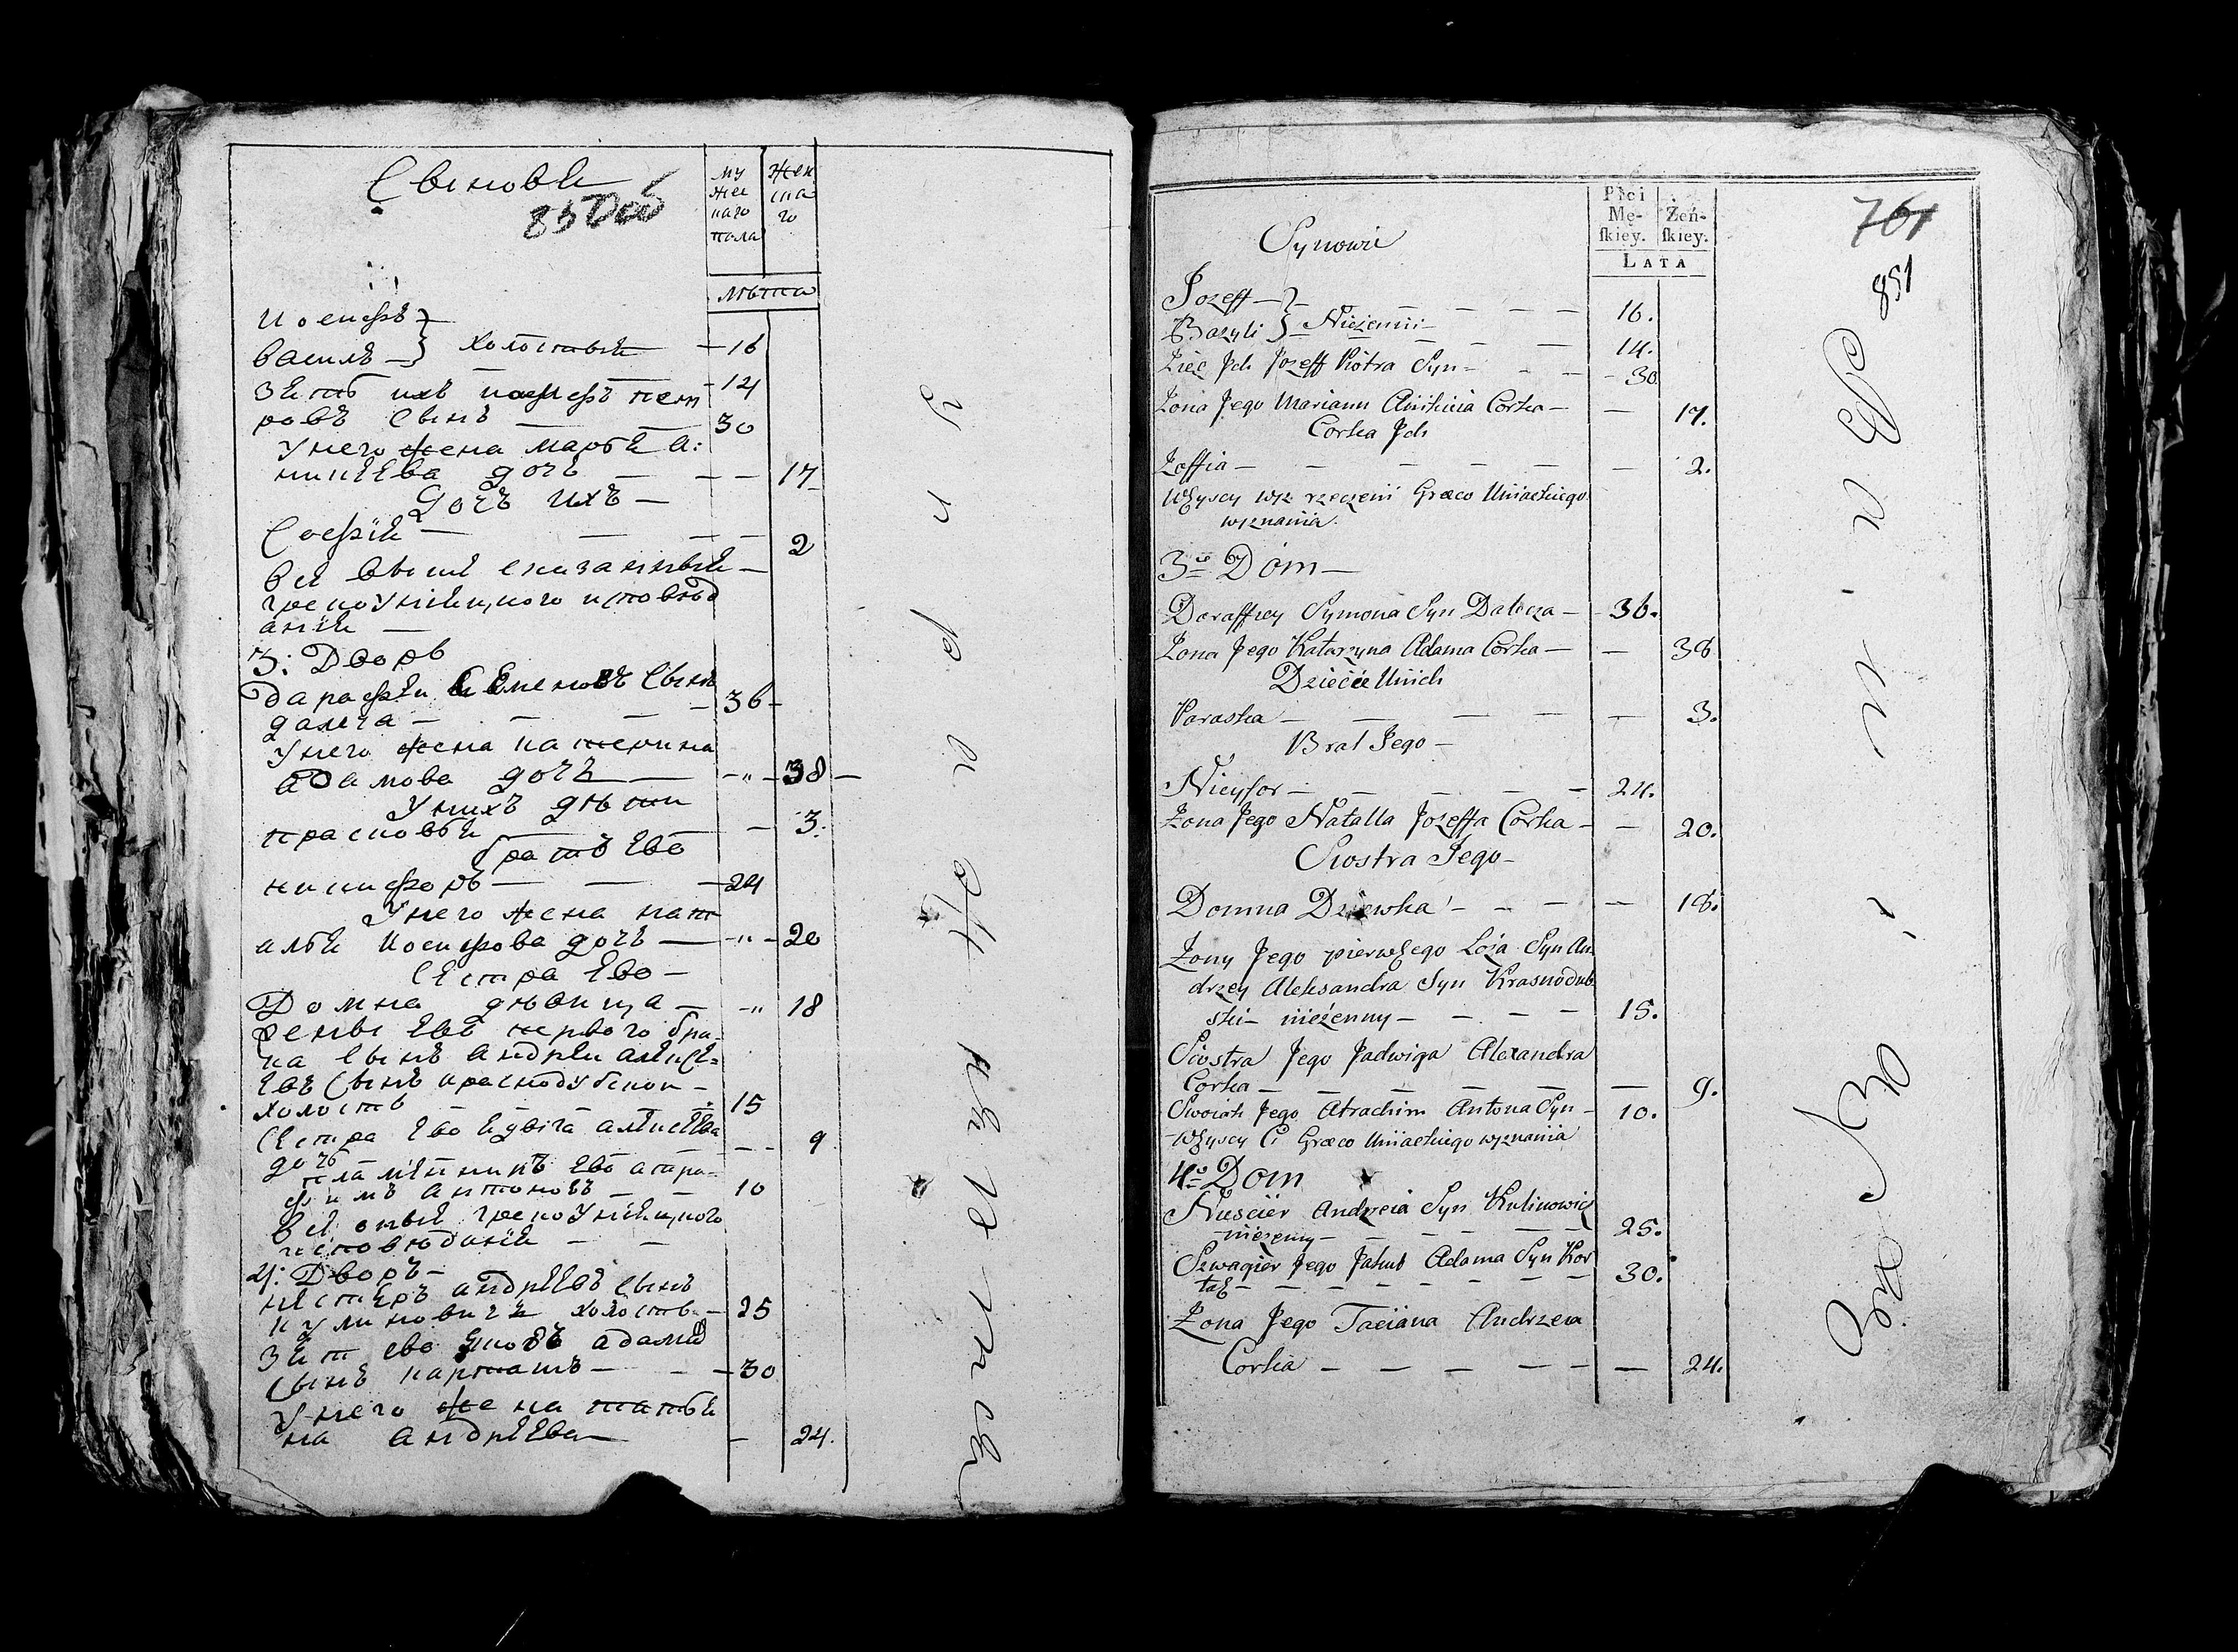 Сыновья
850 об
му
жес
каго
пола
Жен
ска
го
лѣта
Иосифъ
Василь
холостыя — 16
14
Зять ихъ иосифъ пет
ровъ Сынъ — — 30
У него жена марья а:
никѣева дочь — — — 17
Дочь ихъ —
Софія — — — — 2
Всѣ выше сказанныя —
грекоуніяцкого исповѣд
анія —
3: Дворъ
дарафѣи Сѣменовъ Сынъ
далеча — — — — 36 —
У него жена катерина
адамова дочь — — " — 38 —
У нихъ дѣти
прасковья — — — 3.
братъ Ево
никифоръ — — — 24
У него жена нат
алья Иосифова дочь — — " — 20
Сѣстра Ево —
Домна дѣвица — — " 18
жены Ево первого бра
ка Сынъ андрѣи алѣксѣ=
евъ Сынъ краснодубскои —
холостъ — — — — 15
Сѣстра Ево ядвіга алѣксѣева
дочь — — — — — 9
пламѣнникъ Ево атра=
фимъ антоновъ — — 10
Всѣ оныя грекоуніяцкого
исповѣданія — —
4: Дворъ —
нѣстѣръ андрѣевъ Сынъ
кулиновичь холостъ — 25
Зят ево яковъ адамов
Сынъ карташъ — — — 30
У него жена татья
на андрѣева — — 24.
Płci
Mę-
skiey.
Żeń-
skiey.
LATA
761
851
Synowie
Jozeff —
Bazyli
Nieżenni — — — — 16.
— — — 14.
Zięć Ich Jozeff Piotra Syn — — — 30.
Żona Jego Mariann Anikieia Corka — — 17.
Corka Ich
Zoffia — — — — — — 2.
Wszyscy wyż rzeczeni Græco Uniackiego
wyznania.
3io Dom —
Doraffiey Symona Syn Dalecza — 36.
Żona Jego Katarzyna Adama Corka — — 38
Dziecie Unich
Paraska — — — — — 3.
Brat Jego —
Nicyfor — — — — — 24.
Żona Jego Natalla Jozeffa Corka — — 20.
Siostra Jego —
Domna Dziewka — — — — 18.
Żony Jego pierwszego Loża Syn An
drzey Aleksandra Syn Krasnodub
ski nieżenny — — — — 15.
Siostra Jego Jadwiga Alexandra
Corka — — — — — — 9.
Swoiak Jego Atrachim Antona Syn — 10.
Wszyscy Ci Græco Uniackiego wyznania
4o Dom
Niescier Andreia Syn Kulinowicz
nieżenny — — — — — 25.
Szwagier Jego Jakub Adama Syn Kor
tasz — — — — — — 30.
Żona Jego Taciana Andrzeia
Corka — — — — — — 24.